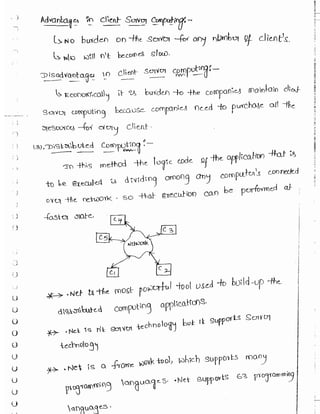 Advantages in Client Server Computing:-
↳ No burden on the Server for any number of client's.
↳ will n't becomes slow.
Disadvantage in client server computing:-
↳ Economically it is burden to the companies maintain client
Server computing because companies need to purchase all the
resources for every client.
Distributed Computing:-
In this method the logic code of the application that is
to be executed is dividing among any computer's connected
over the network. so that execution can be performed at
faster rate.
C4
C3
C5
Network
C1
C2
* → .Net is the most powerful tool used to build-up the
distributed computing applications.
* → .Net is n't server technology but it supports Server
technology
* → .Net is a frame work tool, which supports many
programming languages. .Net supports 63 programming
languages.